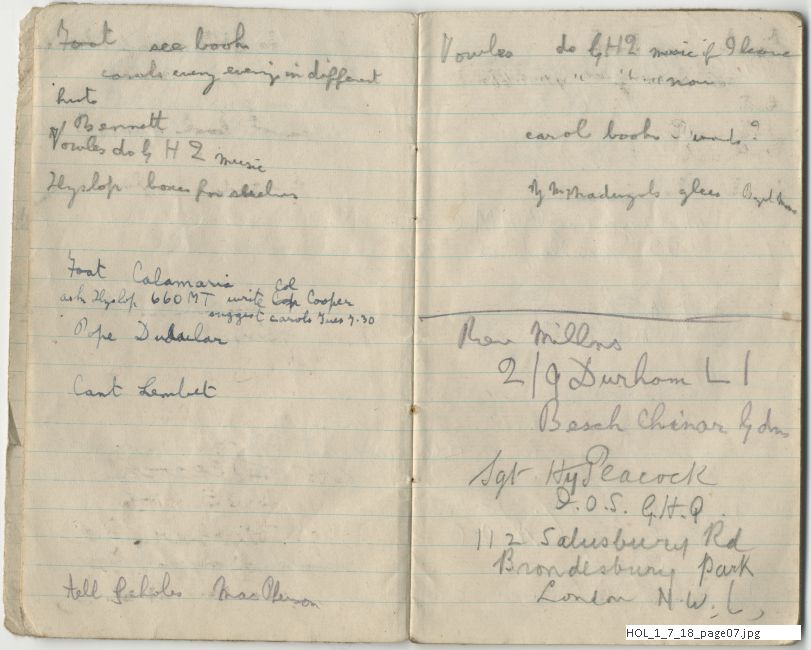 Foot see book
carols every evening in different
huts
Bennett
Vowles do G H Q music
Hyslop boxes for
Foot Calamaria
ask Hyslop 660 MT write Col Cooper
suggest carols Tues 7.30
Pope Dudular
Cant Lembet
tell Scholes MacPherson
Vowles do GHQ music if I leave
now
carol books
My Madrigals glees
Rev Millons
2/9 Durham L I
Besch Chinar Gdns
Sgt Hy Peacock
I.O.S. G.H.Q.
112 Salusbury Rd
Brondesbury Park
London N.W.
HOL_1_7_18_page07.jpg